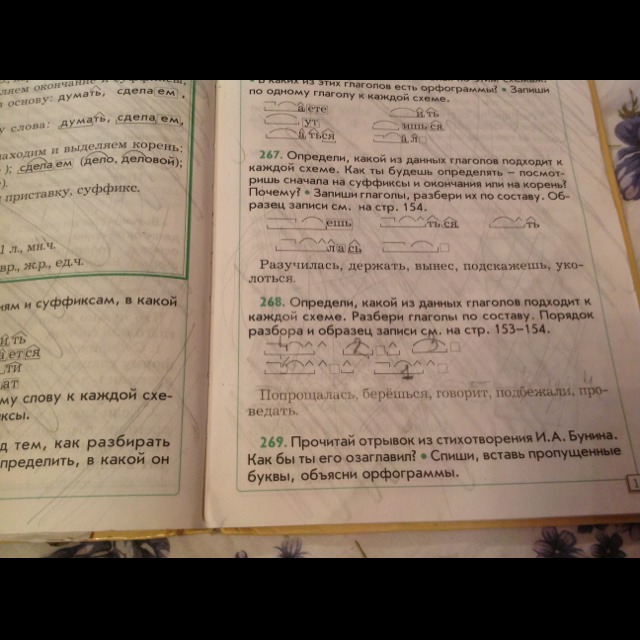 ляем окончание и суффиксы,
в основу: думать, сделаем.
у слова: думать, сделаем,
находим и выделяем корень;
); сделаем (дело, деловой);
приставку, суффикс.
1 л., мн.ч.
вр., ж.р., ед.ч.
ням и суффиксам, в какой
йть
ается
ти
ат
му слову к каждой схе-
ксы.
д тем, как разбирать
пределить, в какой он
В каких из этих глаголов есть орфограммы? • Запиши
по одному глаголу к каждой схеме.
аете ить
ут ишься
аться ал
267. Определи, какой из данных глаголов подходит к
каждой схеме. Как ты будешь определять – посмот-
ришь сначала на суффиксы и окончания или на корень?
Почему? • Запиши глаголы, разбери их по составу. Об-
разец записи см. на стр. 154.
ешь ться ть
лась
Разучилась, держать, вынес, подскажешь, уко-
лоться.
268. Определи, какой из данных глаголов подходит к
каждой схеме. Разбери глаголы по составу. Порядок
разбора и образец записи см. на стр. 153–154.
2 3
1
Попрощалась, берёшься, говорит, подбежали, про-
ведать.
269. Прочитай отрывок из стихотворения И.А. Бунина.
Как бы ты его озаглавил? • Спиши, вставь пропущенные
буквы, объясни орфограммы.